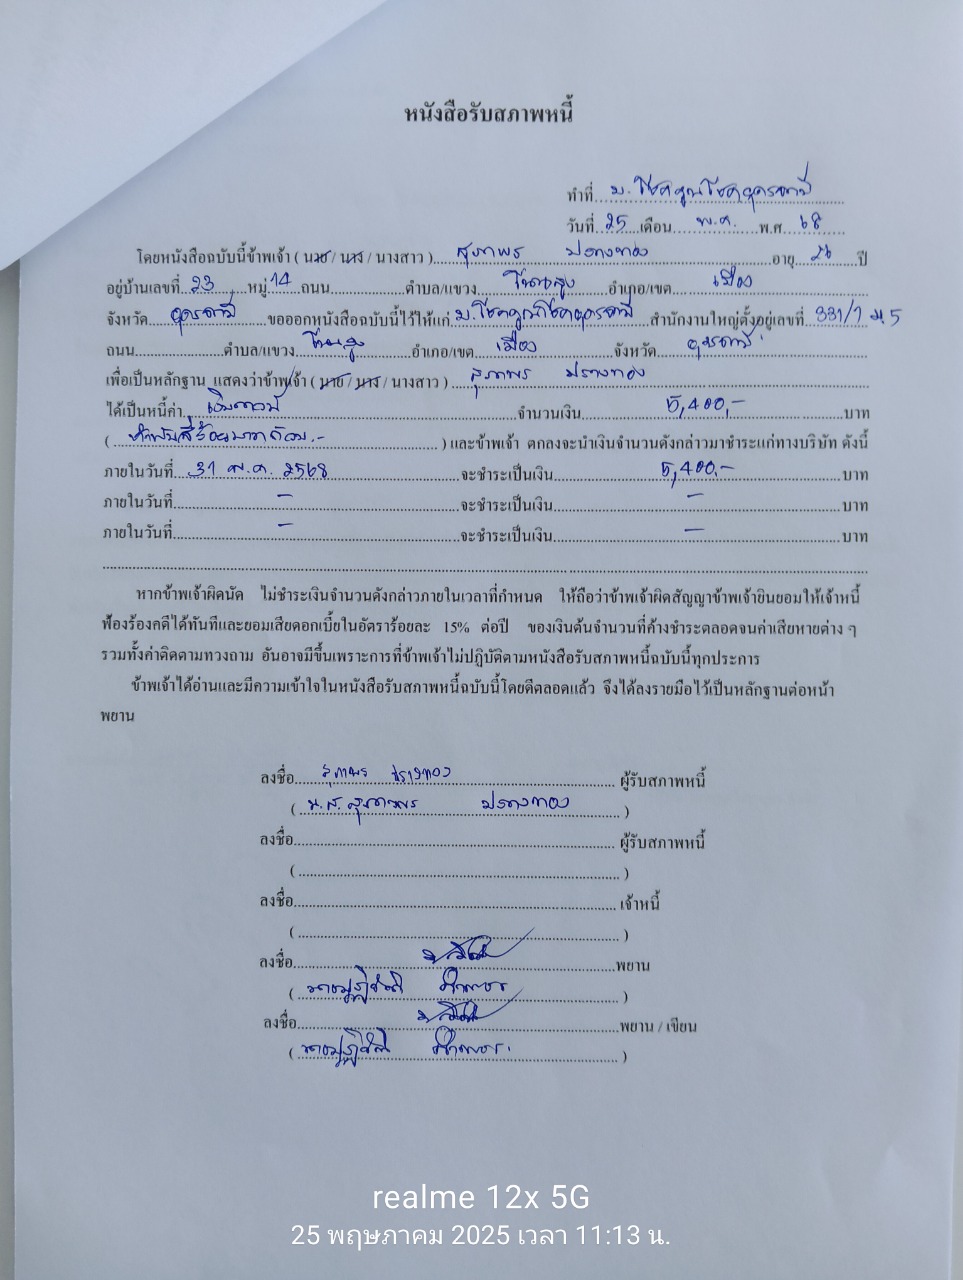 หนังสือรับสภาพหนี้
ทำที่ บ. โชคคูณโชคอุดรธานี
วันที่ 25 เดือน พ.ค. พ.ศ 68
โดยหนังสือฉบับนี้ข้าพเจ้า ( นาย / นาง / นางสาว ) สุภาพร ปรางทอง อายุ 26 ปี
อยู่บ้านเลขที่ 23 หมู่ 14 ถนน ตำบล/แขวง โนนสูง อำเภอ/เขต เมือง
จังหวัด อุดรธานี ขอออกหนังสือฉบับนี้ไว้ให้แก่ บ. โชคคูณโชคอุดรธานี สำนักงานใหญ่ตั้งอยู่เลขที่ 331/1 ม 5
ถนน ตำบล/แขวง โนนสูง อำเภอ/เขต เมือง จังหวัด อุดรธานี
เพื่อเป็นหลักฐาน แสดงว่าข้าพเจ้า ( นาย / นาง / นางสาว ) สุภาพร ปรางทอง
ได้เป็นหนี้ค่า เงินดาวน์ จำนวนเงิน 5,400.- บาท
( ห้าพันสี่ร้อยบาทถ้วน.- ) และข้าพเจ้า ตกลงจะนำเงินจำนวนดังกล่าวมาชำระแก่ทางบริษัท ดังนี้
ภายในวันที่ 31 พ.ค. 2568 จะชำระเป็นเงิน 5,400.- บาท
ภายในวันที่ - จะชำระเป็นเงิน - บาท
ภายในวันที่ - จะชำระเป็นเงิน - บาท
หากข้าพเจ้าผิดนัด ไม่ชำระเงินจำนวนดังกล่าวภายในเวลาที่กำหนด ให้ถือว่าข้าพเจ้าผิดสัญญาข้าพเจ้ายินยอมให้เจ้าหนี้
ฟ้องร้องคดีได้ทันทีและยอมเสียดอกเบี้ยในอัตราร้อยละ 15% ต่อปี ของเงินต้นจำนวนที่ค้างชำระตลอดจนค่าเสียหายต่าง ๆ
รวมทั้งค่าติดตามทวงถาม อันอาจมีขึ้นเพราะการที่ข้าพเจ้าไม่ปฏิบัติตามหนังสือรับสภาพหนี้ฉบับนี้ทุกประการ
ข้าพเจ้าได้อ่านและมีความเข้าใจในหนังสือรับสภาพหนี้ฉบับนี้โดยดีตลอดแล้ว จึงได้ลงรายมือไว้เป็นหลักฐานต่อหน้า
พยาน
ลงชื่อ สุภาพร ปรางทอง ผู้รับสภาพหนี้
( น.ส. สุภาพร ปรางทอง )
ลงชื่อ ผู้รับสภาพหนี้
( )
ลงชื่อ เจ้าหนี้
( )
ลงชื่อ พยาน
( )
ลงชื่อ พยาน / เขียน
( )
realme 12x 5G
25 พฤษภาคม 2025 เวลา 11:13 น.